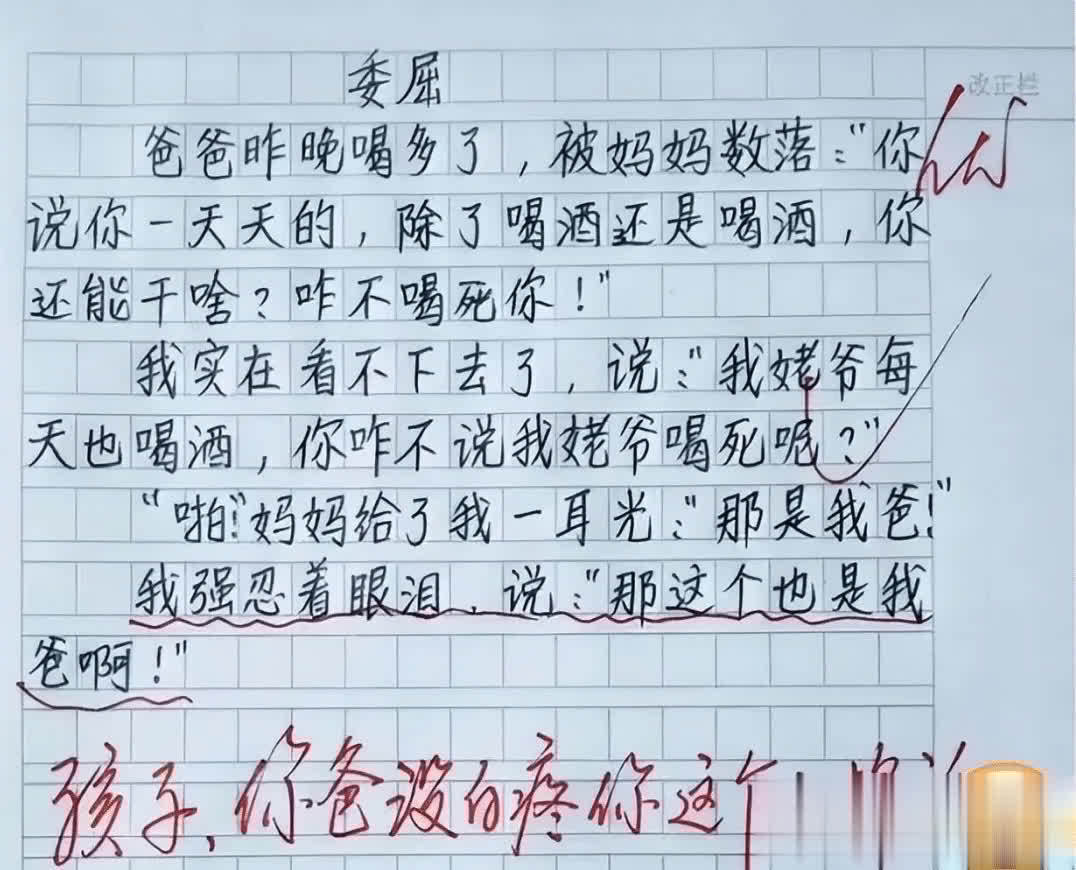 改正栏
委屈
爸爸昨晚喝多了，被妈妈数落："你
说你一天天的，除了喝酒还是喝酒，你
还能干啥？咋不喝死你！"
我实在看不下去了，说："我姥爷每
天也喝酒，你咋不说我姥爷喝死呢？"
"啪！"妈妈给了我一耳光："那是我爸！"
我强忍着眼泪，说："那这个也是我
爸啊！"
孩子，你爸没白疼你这个